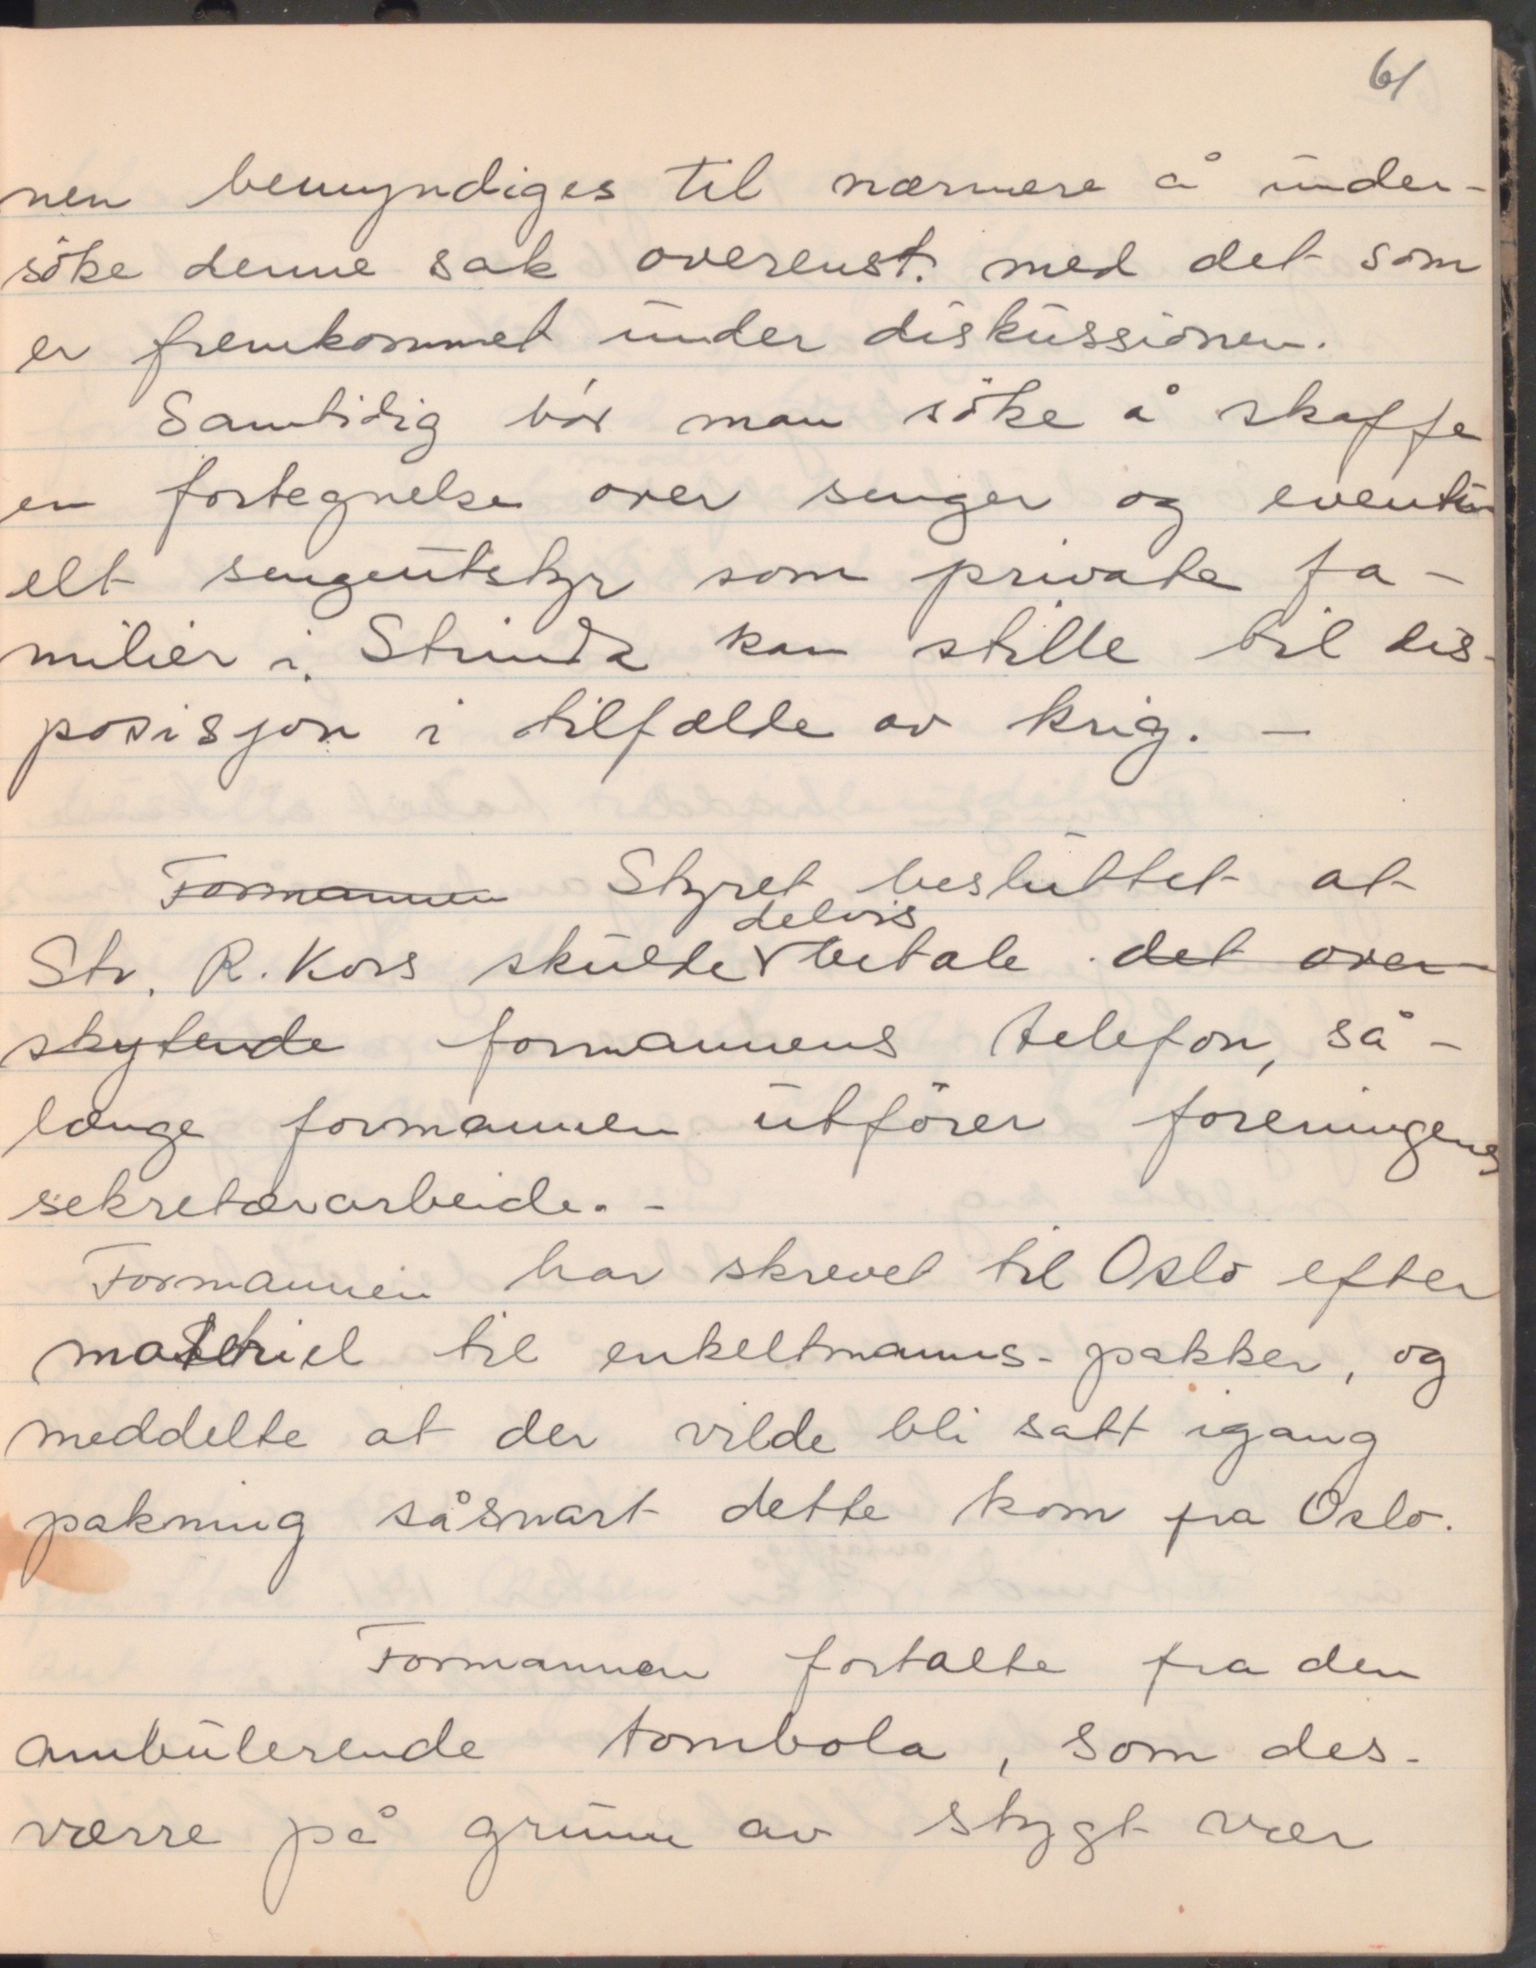 61
nen bemyndiges til nærmere å under-
søke denne sak overenst. med det som
er fremkommet under diskussionen.
Samtidig bør man søke å skaffe
en fortegnelse over senger og eventu
elt sengeutstyr som private fa-
milier i Strinda kan stille til dis-
posisjon i tilfælde av krig. -
Formannen Styret besluttet at
delvis
Str. R. Kors skulde betale det over-
skytende formannens telefon, så-
længe formannen utfører foreningens
sekretærarbeide. -
Formannen har skrevet til Oslo efter
materiel til enkeltmanns-pakker, og
meddelte at der vilde bli satt igang
pakning såsnart dette kom fra Oslo.
Formannen fortalte fra den
ambulerende tombola, som des-
værre på grunn av stygt vær